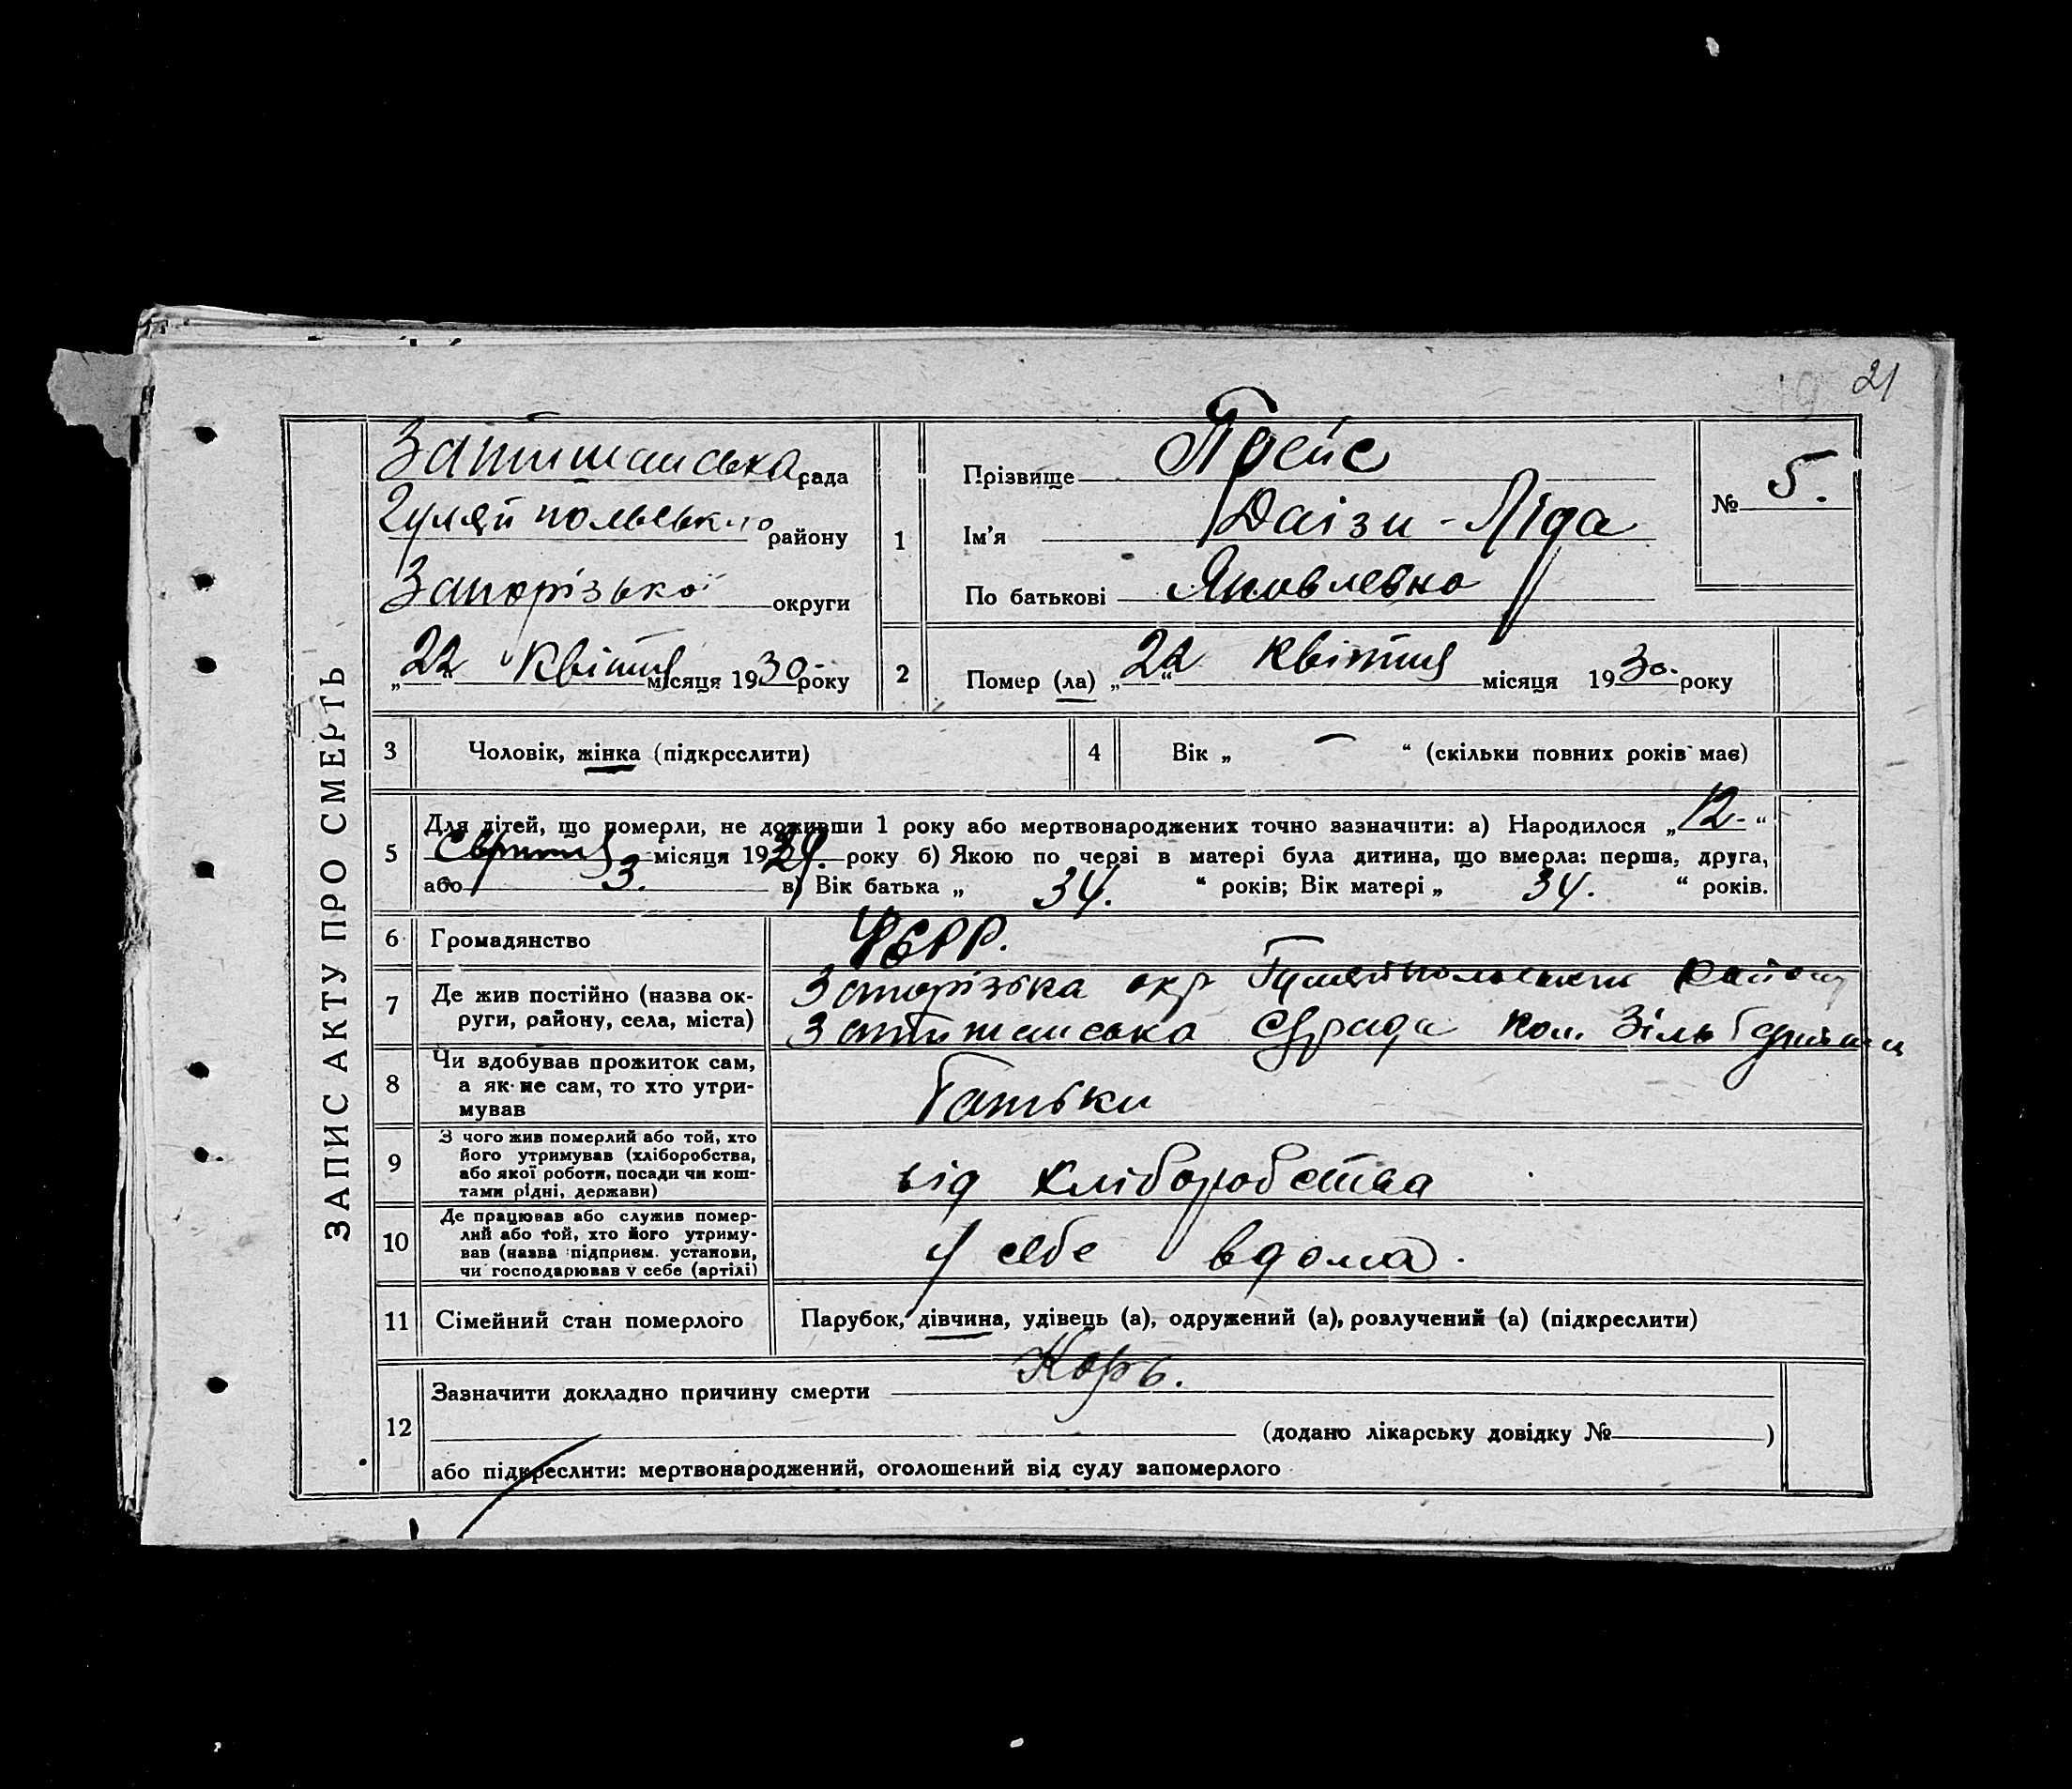 21
ЗАПИС АКТУ ПРО СМЕРТЬ
Затишанська рада
Гуляйпольського району
Запорізької округи
„22“ квітня місяця 1930 року
1
Прізвище Прейс
Ім'я Даізи-Ліда
По батькові Яковлевна
№ 5.
2
Помер (ла) „22“ квітня місяця 1930. року
3 Чоловік, жінка (підкреслити)
4 Вік „ — “ (скільки повних років має)
5 Для дітей, що померли, не доживши 1 року або мертвонароджених точно зазначити: а) Народилося „12.“
Серпня місяця 1929. року б) Якою по черві в матері була дитина, що вмерла: перша, друга,
або 3. в) Вік батька „ 34. “ років; Вік матері „ 34. “ років.
6 Громадянство УСРР.
7 Де жив постійно (назва округи, району, села, міста)
Запорізька окр Гуляйпольський район
Затишанська с/рада кол.
8 Чи здобував прожиток сам,
а як не сам, то хто утри-
мував
Батьки
9 З чого жив померлий або той, хто
його утримував (хліборобства,
або якої роботи, посади чи кош-
тами рідні, держави)
від хліборобства
10 Де працював або служив помер-
лий або той, хто його утриму-
вав (назва підприєм. установи,
чи господарював у себе (артілі)
у себе вдома.
11 Сімейний стан померлого
Парубок, дівчина, удівець (а), одружений (а), розлучений (а) (підкреслити)
12 Зазначити докладно причину смерти Корь.
(додано лікарську довідку № )
або підкреслити: мертвонароджений, оголошений від суду запомерлого